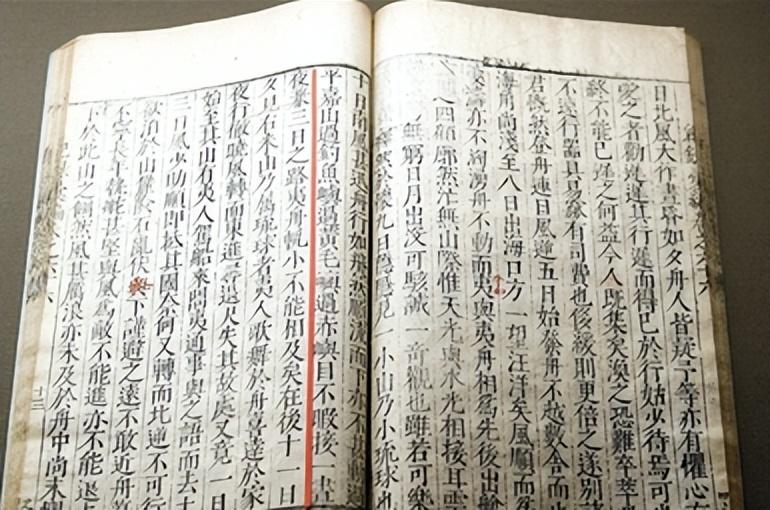 日北風大作晝昏如夕舟人皆疑予等亦有懼心有
愛之者勸遲遲其行遲而得已於行姑少待焉可也
終不能已遲之何益今人既集矣渙之恐難卒萃舟
不速行器具易窳有司費已侈緩則更倍之遂別諸
君慨然登舟連日風逆五日始發舟不越數舍而止
海角尚淺至八日出海口方一望汪洋矣風順而微
波濤亦不洶湧舟不動而移與夷舟相為先後出艙
之四顧廓然茫無山際惟天光與水光相接耳雲
無窮日月出沒可駭誠一奇觀也雖若可樂
然於懷九日隱隱見一小山乃小琉球也
十日南風甚迅舟行如飛然順流而下亦不甚動過
平嘉山過釣魚嶼過黃毛嶼過赤嶼目不暇接一晝
夜兼三日之路夷舟帆小不能相及矣在後十一日
夕見古米山乃屬琉球者夷人歌舞於舟喜達於家
夜行徹曉風轉而東進尋退尺失其故處又竟一日
始至其山有夷人駕船來問夷通事與之語而去十
三日風少助順即抵其國奈何又轉而北逆不可行
欲泊於山麓險石亂伏於下謹避之遠不敢近舟蕩
不寧長年執舵甚堅與風為敵不能進亦不能退上
下於此山之側然風甚厲浪亦未及於舟中尚未懼